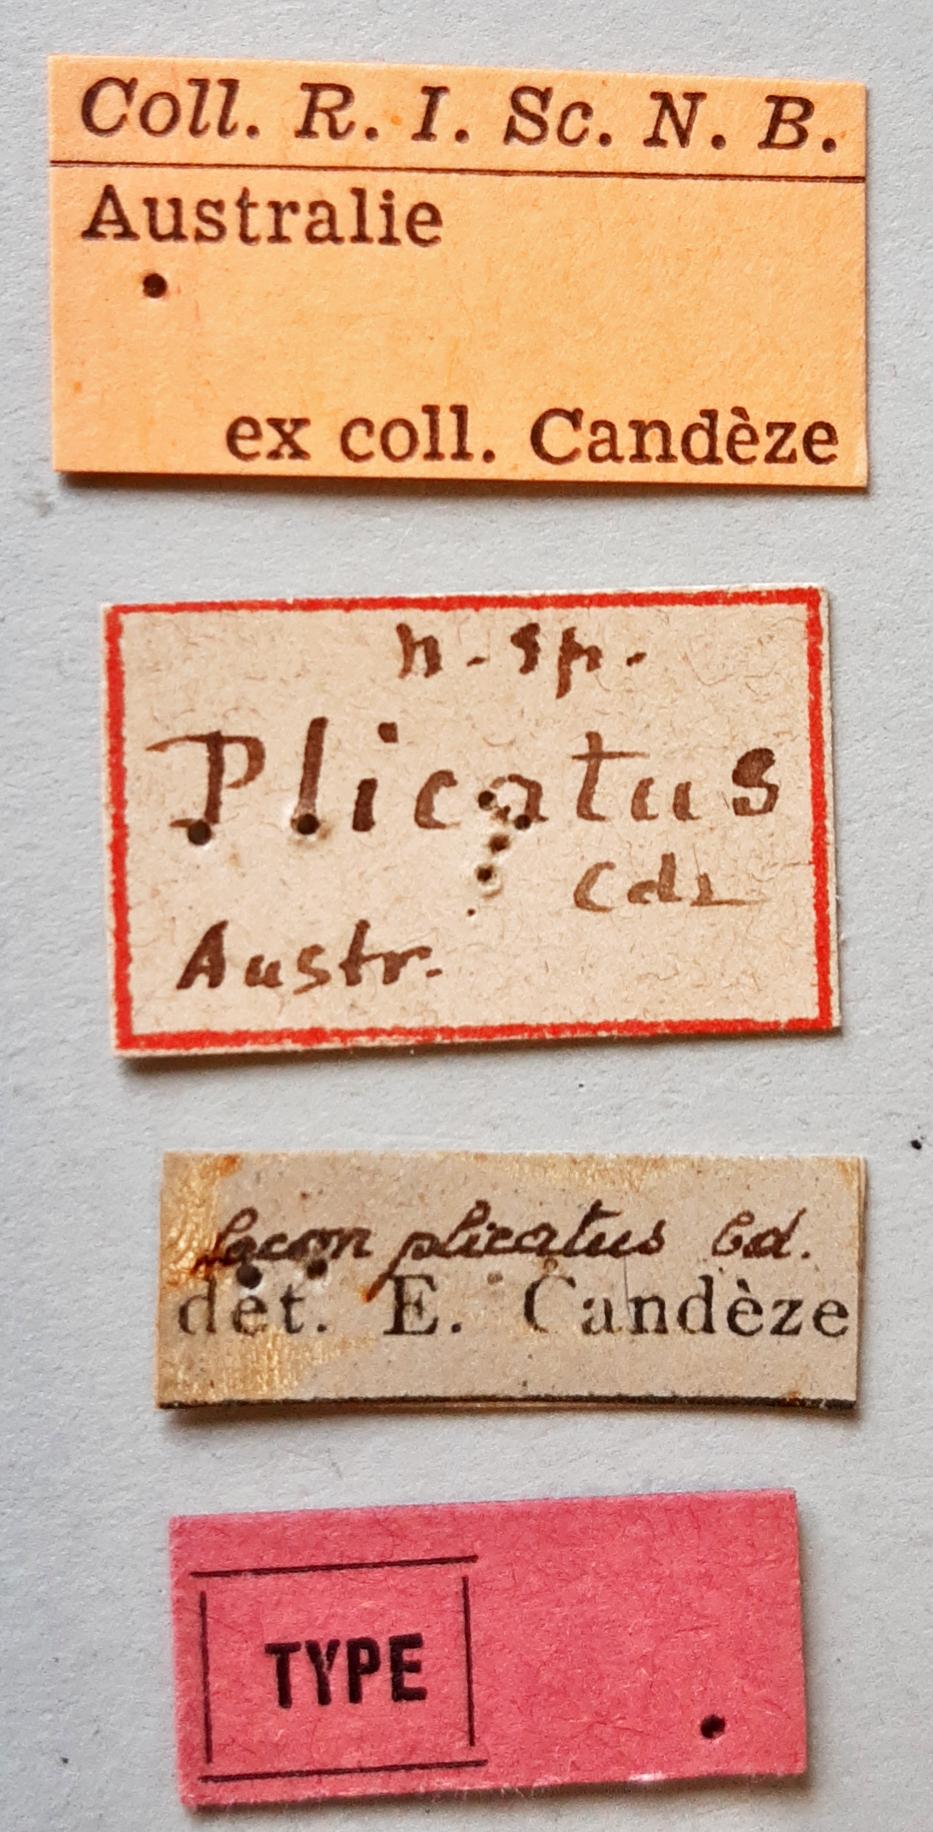 Coll. R. I. Sc. N. B.
Australie
ex coll. Candèze
n. sp.
Plicatus
Cdz
Austr.
Lacon plicatus Cd.
det. E. Candèze
TYPE